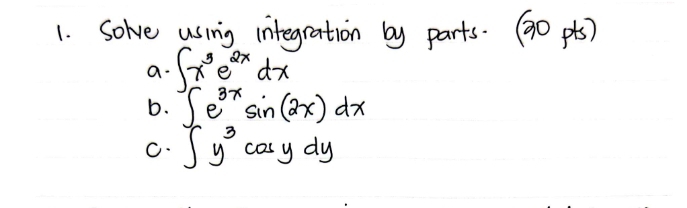 1. Solve using integration by parts. (20 pts)
a. ∫x³ e²ˣ dx
b. ∫e³ˣ sin (2x) dx
c. ∫y³ cos y dy